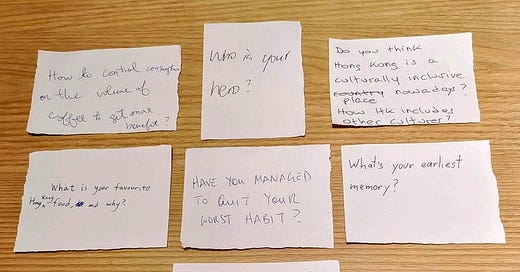 How to control consumption
on the volume of
coffee to get max
benefit?
Who is your
hero?
Do you think
Hong Kong is a
culturally inclusive
country nowadays?
place
How HK includes
other cultures?
What is your favourite
Hong Kong food, and why?
HAVE YOU MANAGED
TO QUIT YOUR
WORST HABIT?
What's your earliest
memory?